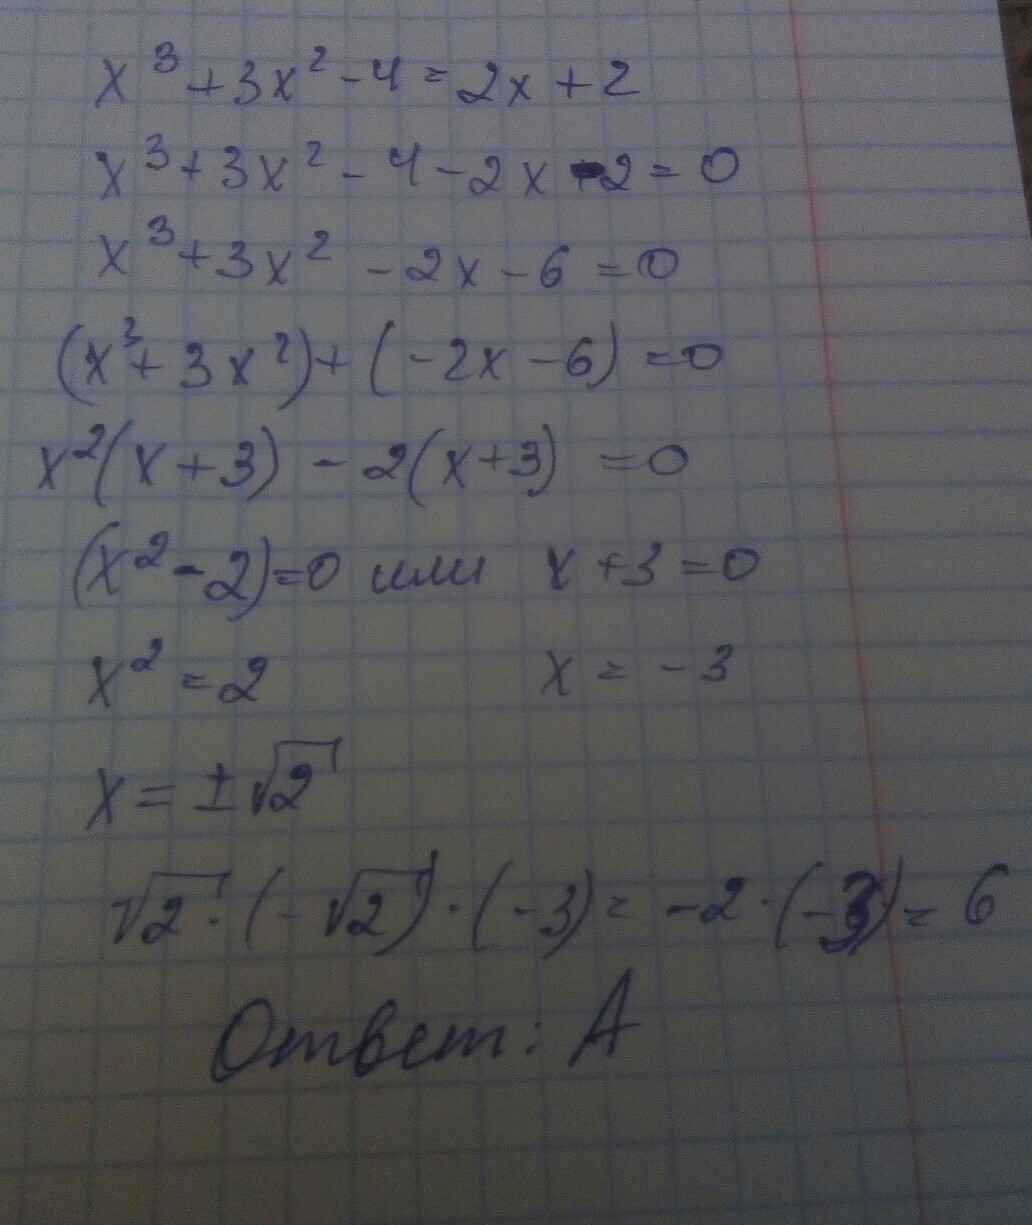 x³ + 3x² - 4 = 2x + 2
x³ + 3x² - 4 - 2x - 2 = 0
x³ + 3x² - 2x - 6 = 0
(x³ + 3x²) + (-2x - 6) = 0
x²(x + 3) - 2(x + 3) = 0
(x² - 2) = 0 или x + 3 = 0
x² = 2 x = -3
x = ±√2
√2 · (-√2) · (-3) = -2 · (-3) = 6
Ответ: А